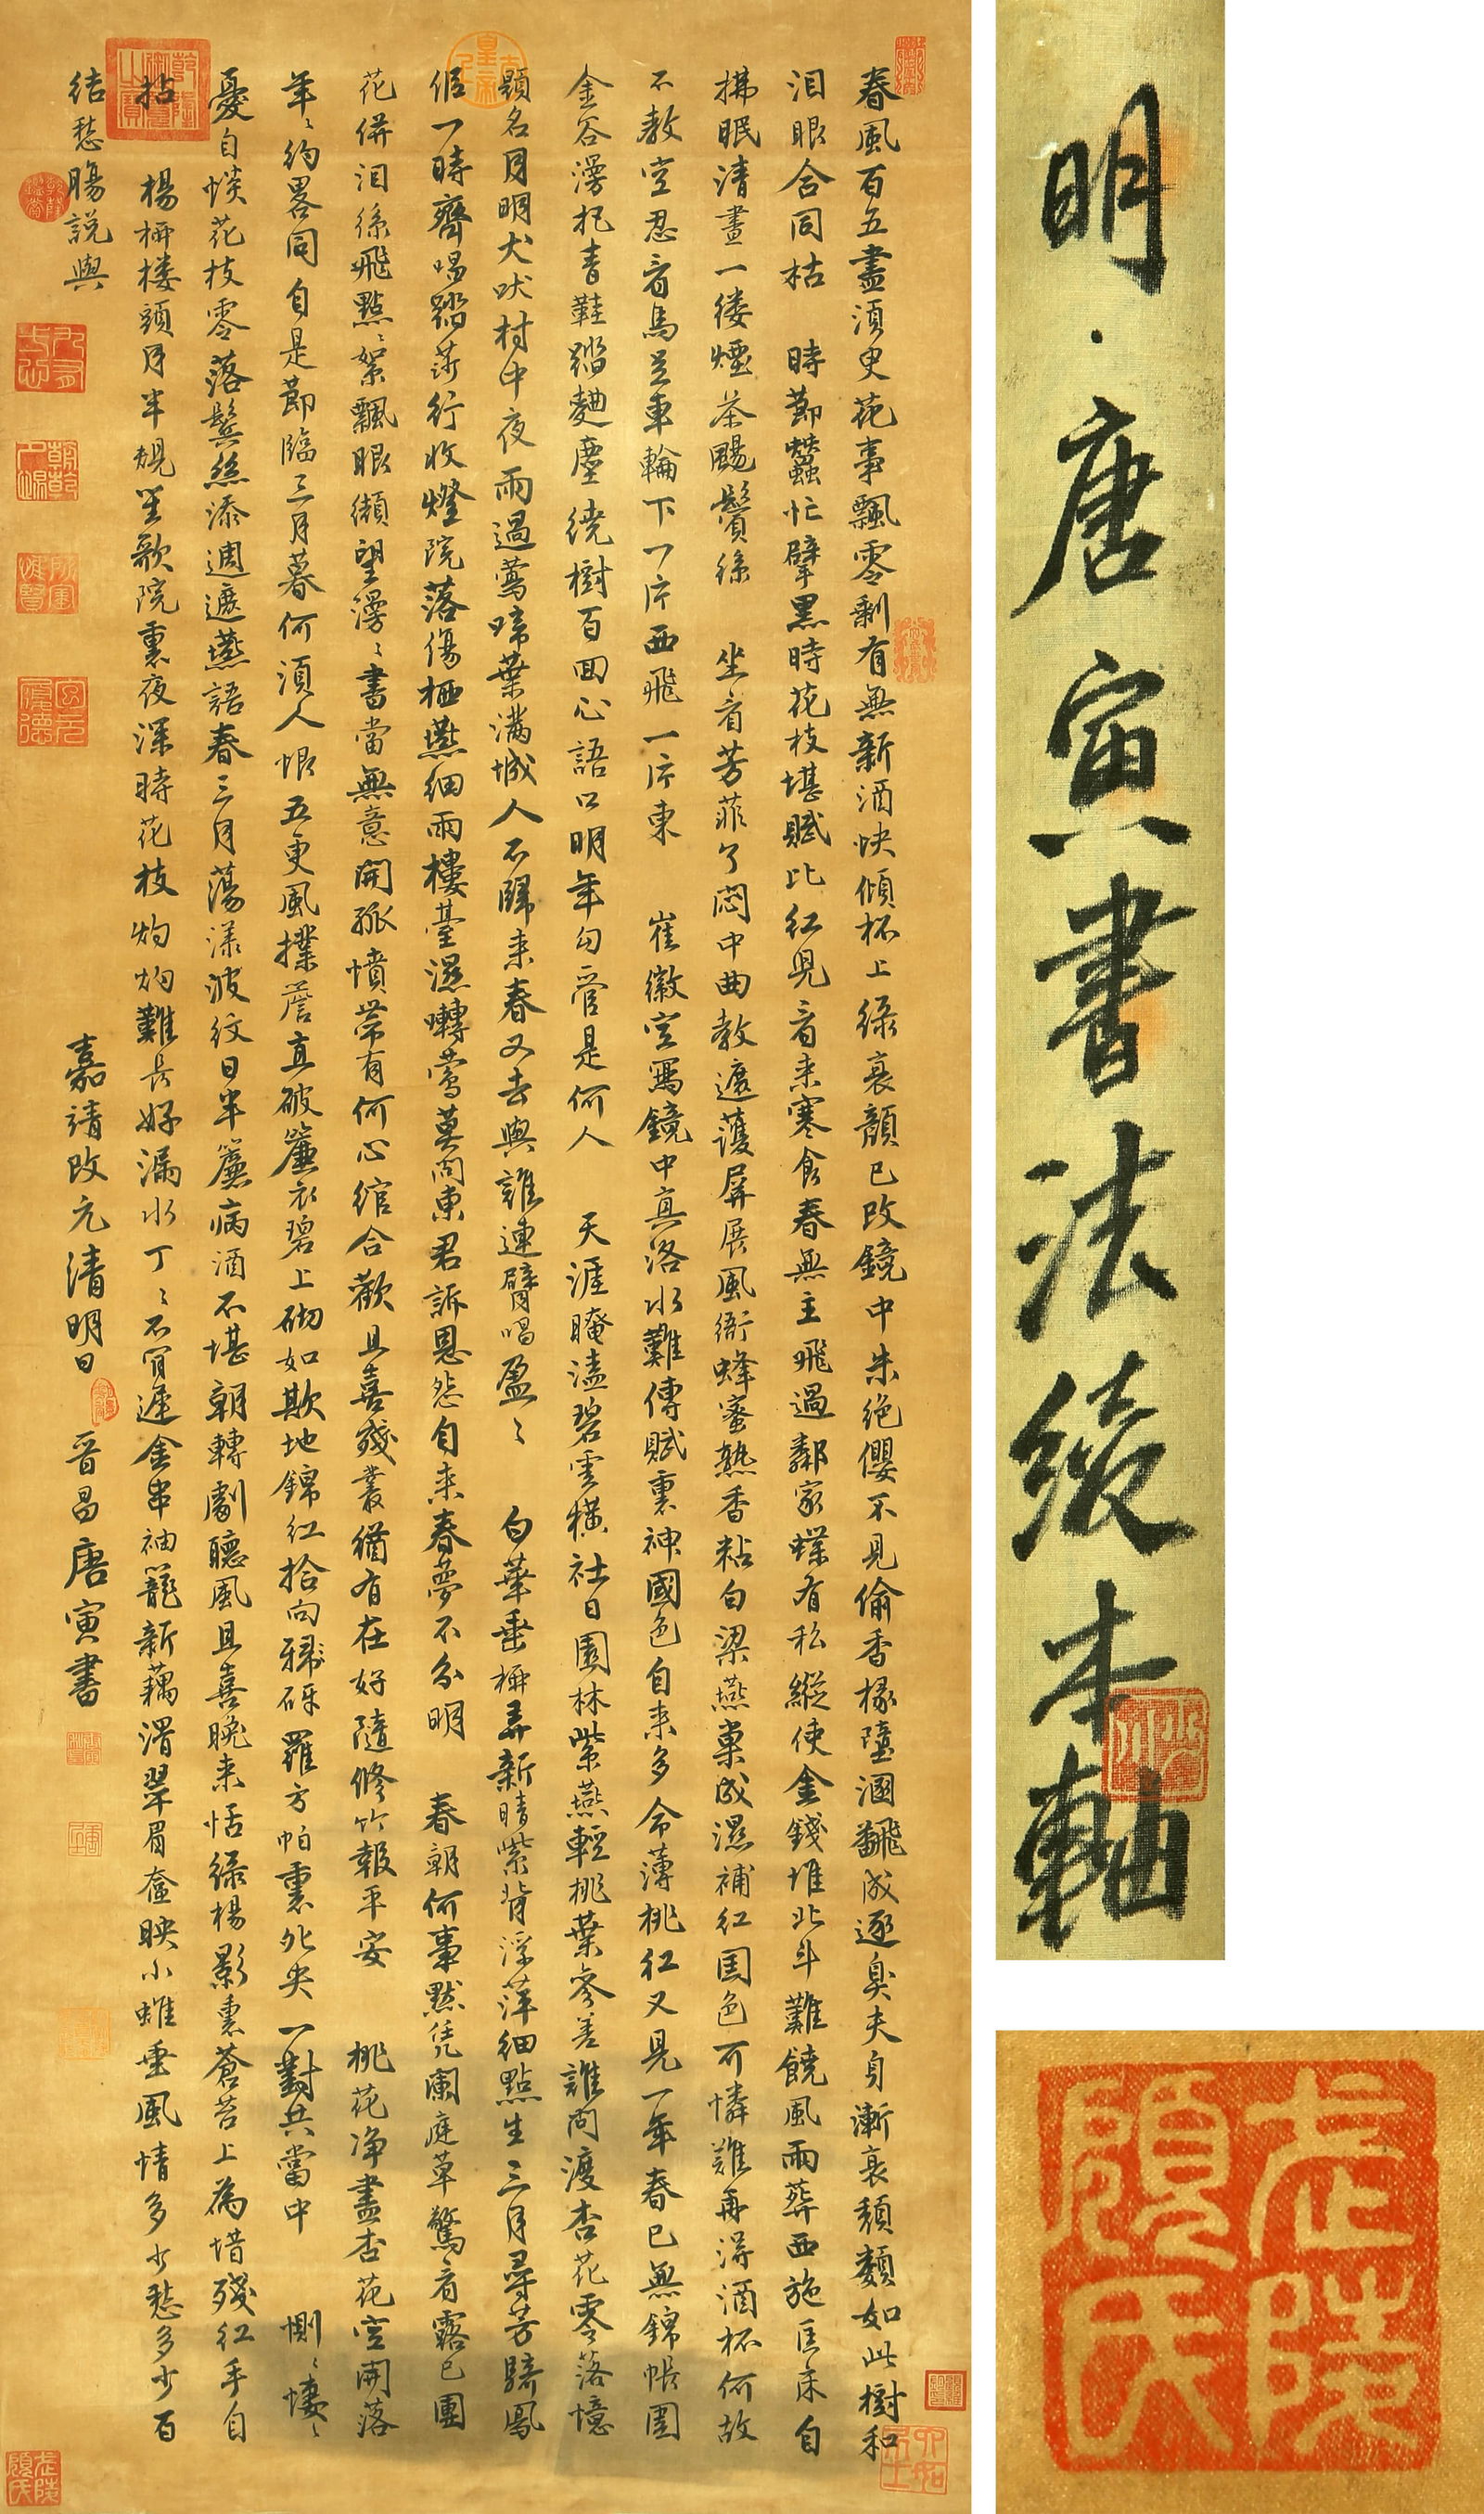 春風百五盡須更花事飄零剩有無新酒快傾杯上綠衰顏已改鏡中朱絕纓不見偷香椽墮溷飜成逐臭夫身漸衰頹類如此樹和
淚眼合同枯 時節蠶忙擘黑時花枝堪賦比紅兒看來寒食春無主飛過鄰家蝶有私縱使金錢堆北斗難饒風雨葬西施匡床自
拂眠清晝一縷煙茶颺鬢絲 坐看芳菲了悶中曲教遮護屏展風衙蜂蜜熟香粘白梁燕巢成濕補紅國色可憐難再得酒杯何故
不教空忍看馬足車輪下一片西飛一片東 崔徽空寫鏡中真洛水難傳賦裏神國色自來多命薄桃紅又見一年春已無錦帳圍
金谷漫把青鞋踏麯塵繞樹百回心語口明年勾管是何人 天涯晻溘碧雲橫社日園林紫燕輕桃葉參差誰問渡杏花零落憶
題名月明犬吠村中夜雨過鶯啼葉滿城人不歸來春又去與誰連臂唱盈〻 白華垂柳弄新晴紫背浮萍細點生三月尋芳騎鳳
侶一時齊唱踏莎行收燈院落傷栖燕細雨樓臺濕囀鶯莫向東君訴恩怨自來春夢不分明 春朝何事默凭闌庭草驚看露已團
花併淚絲飛點〻絮飄眼纈望漫〻書當無意開孤憤帶有何心綰合歡且喜殘叢猶有在好隨修竹報平安 桃花淨盡杏花空開落
年〻約畧同自是節臨三月暮何須人恨五更風撲簷直破簾衣碧上砌如欺地錦紅拾向砑羅方帕裏鴛央一對共當中 惻〻悽〻
憂自惔花枝零落鬢絲添週遮燕語春三月蕩漾波紋日半簾病酒不堪朝轉劇聽風且喜晚來恬綠楊影裏蒼苔上為惜殘紅手自
拈 楊柳樓頭月半規笙歌院裏夜深時花枝灼灼難長好漏水丁〻不肯遲金串袖籠新藕滑翠眉奩映小蟬垂風情多少愁多少百
結愁腸說與
嘉靖改元清明日 晉昌唐寅書
明·唐寅書法續本軸
武陵顧氏